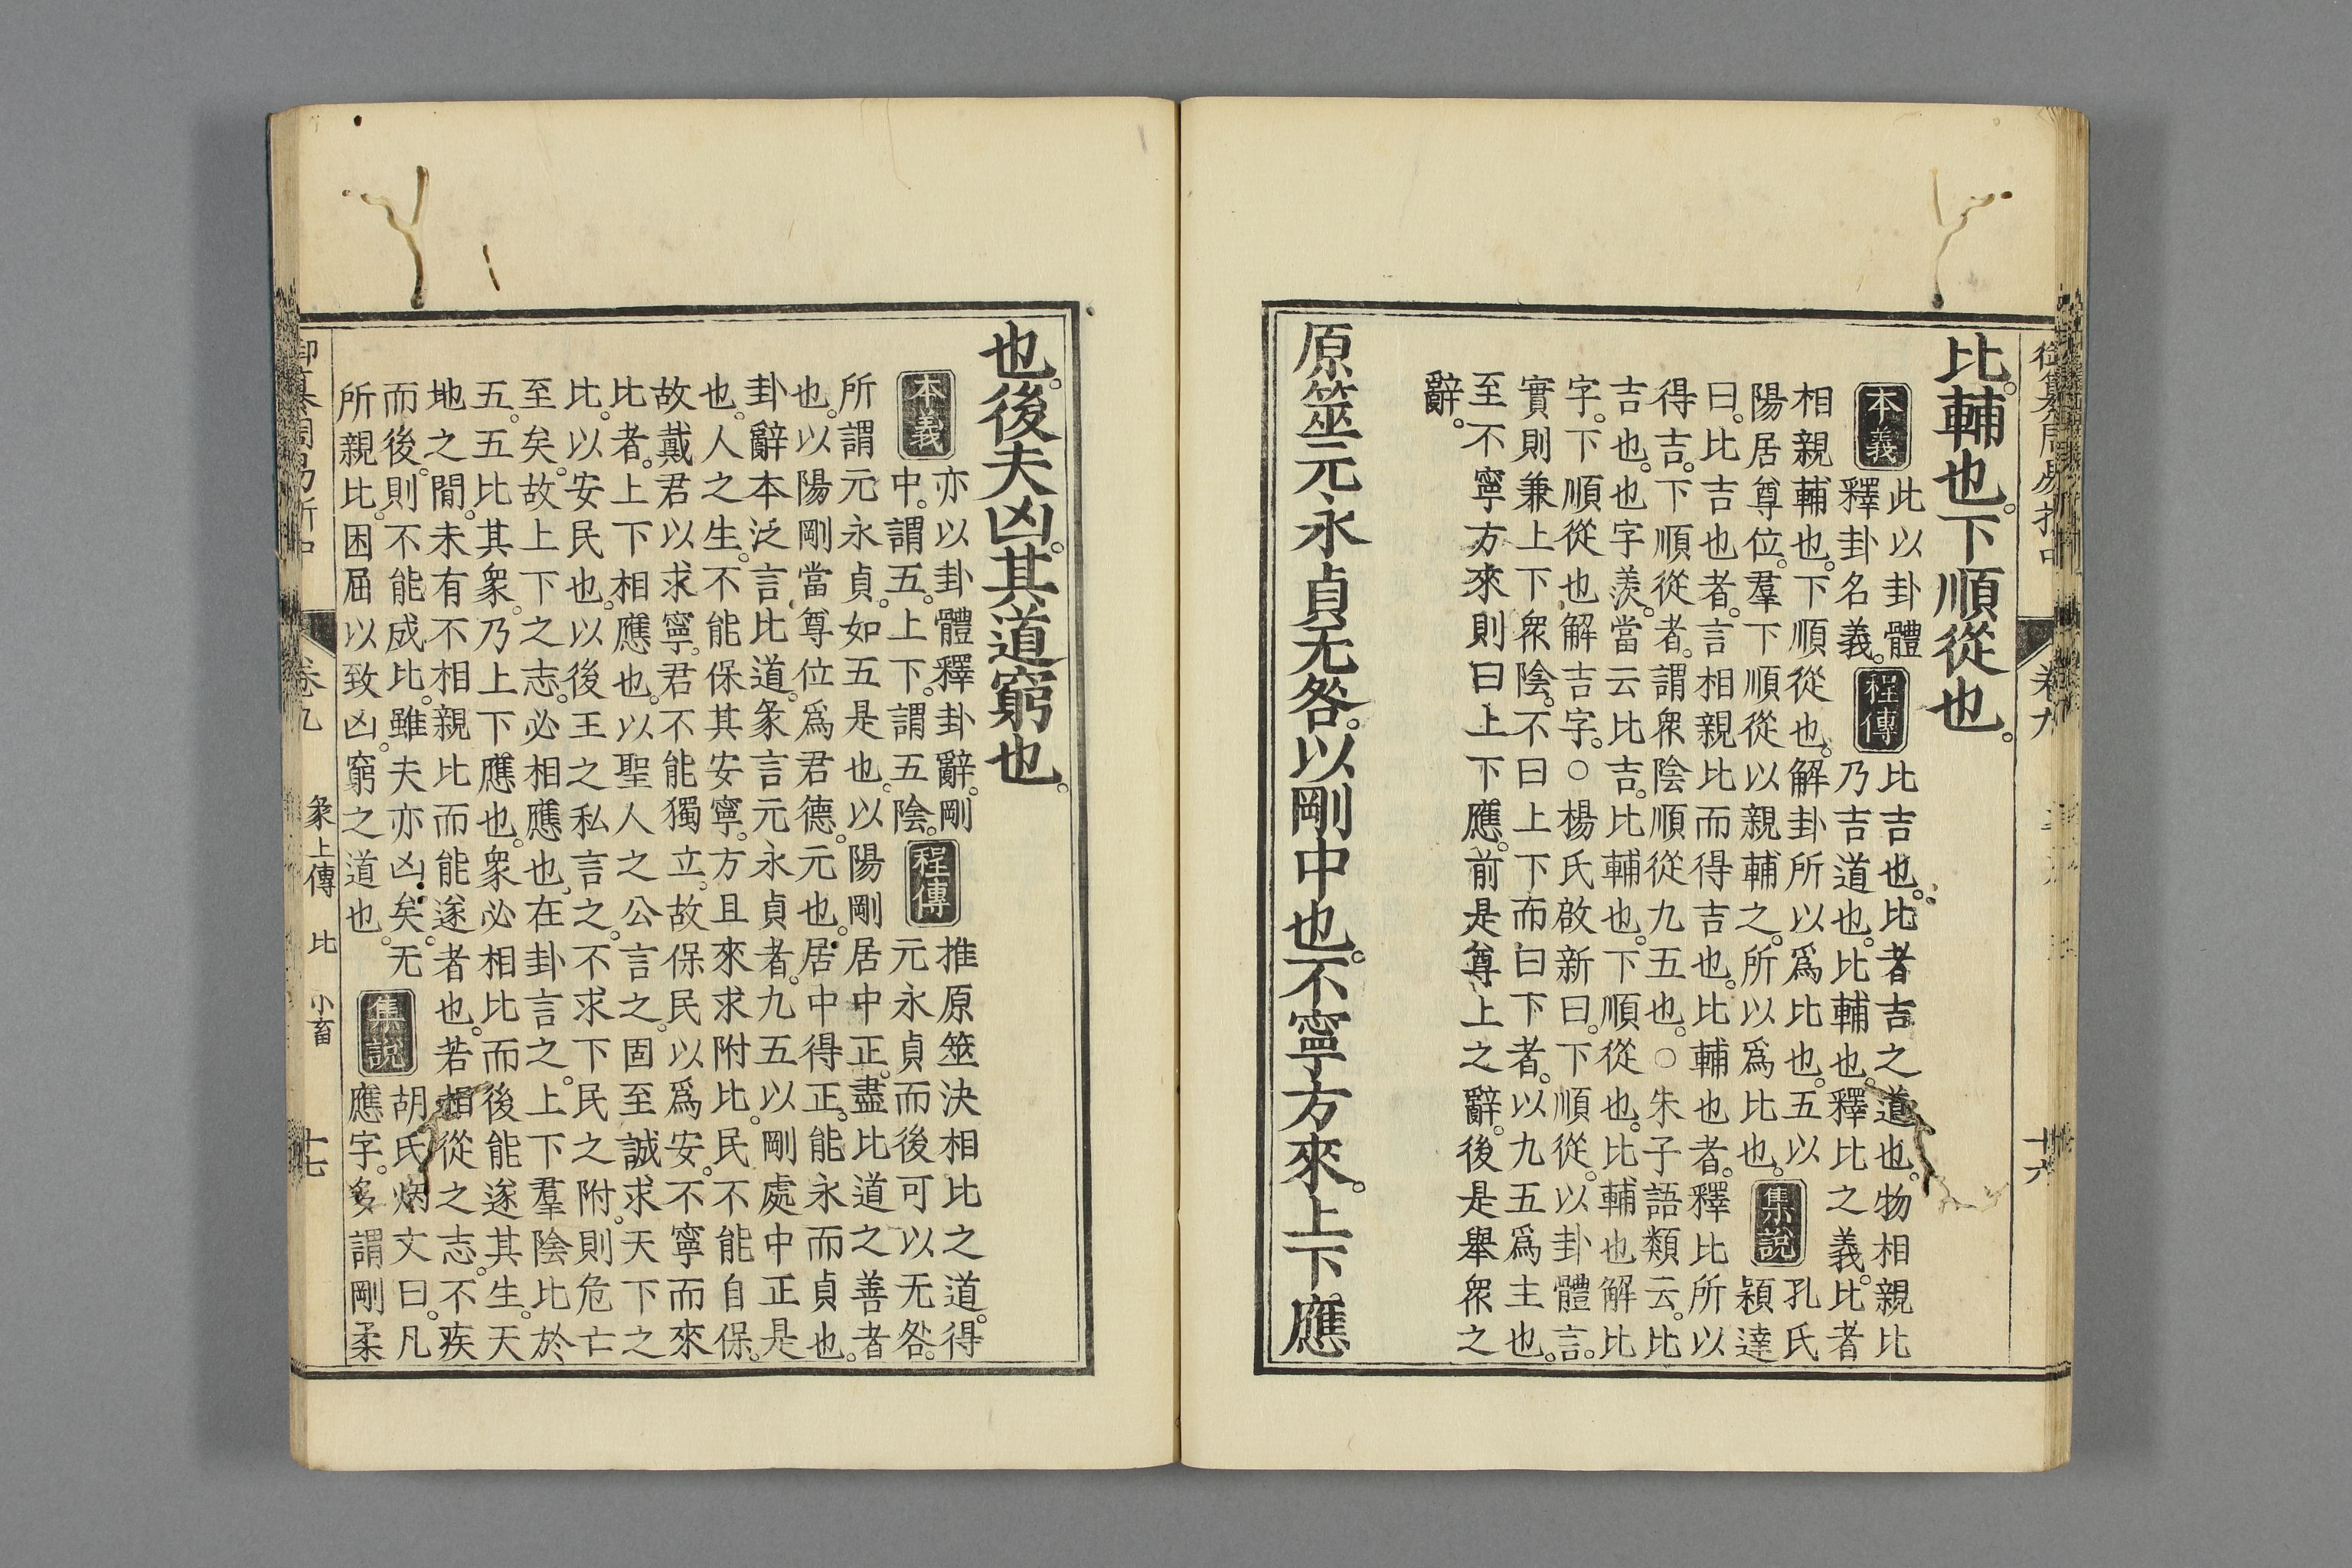 御纂周易折中 卷九 十六
比。輔也。下順從也。
本義 此以卦體 程傳 比吉也。比者吉之道也。物相親比
釋卦名義。 乃吉道也。比輔也。釋比之義。比者
相親輔也。下順從也。解卦所以爲比也。五以 集說 孔氏
陽居尊位。羣下順從以親輔之。所以爲比也。 穎達
曰。比吉也者。言相親比而得吉也。比輔也者。釋比所以
得吉。下順從者。謂衆陰順從九五也。○朱子語類云。比
吉也。也字羨。當云比吉。比輔也。下順從也。比輔也解比
字。下順從也解吉字。○楊氏啟新曰。下順從。以卦體言。
實則兼上下衆陰。不曰上下而曰下者。以九五爲主也。
至不寧方來則曰上下應。前是尊上之辭。後是舉衆之
辭。
原筮元永貞无咎。以剛中也。不寧方來。上下應
也。後夫凶。其道窮也。
本義 亦以卦體釋卦辭。剛 程傳 推原筮決相比之道。得
中。謂五。上下。謂五陰。 元永貞而後可以无咎。
所謂元永貞。如五是也。以陽剛居中正。盡比道之善者
也。以陽剛當尊位爲君德。元也。居中得正。能永而貞也。
卦辭本泛言比道。彖言元永貞者。九五以剛處中正是
也。人之生。不能保其安寧。方且來求附比。民不能自保。
故戴君以求寧。君不能獨立。故保民以爲安。不寧而來
比者。上下相應也。以聖人之公言之。固至誠求天下之
比。以安民也。以後王之私言之。不求下民之附。則危亡
至矣。故上下之志。必相應也。在卦言之。上下羣陰比於
五。五比其衆。乃上下應也。衆必相比而後能遂其生。天
地之閒。未有不相親比而能遂者也。若相從之志。不疾
而後。則不能成比。雖夫亦凶矣。无 集說 胡氏炳文曰。凡
所親比。困屈以致凶。窮之道也。 應字。多謂剛柔
御纂周易折中 卷九 彖上傳 比 小畜 十七